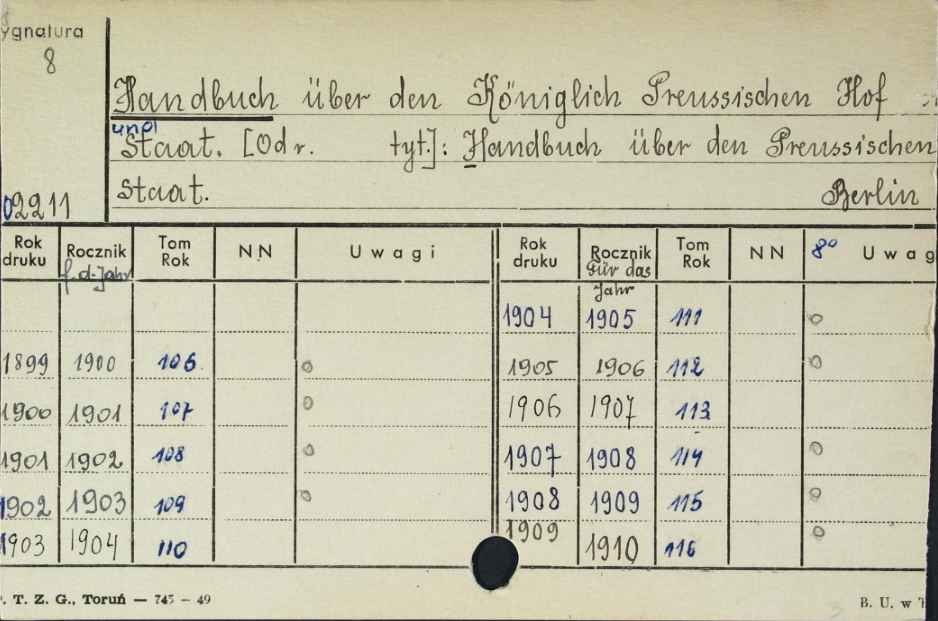 ygnatura
8
02211
Handbuch über den Königlich Preussischen Hof
und Staat. [Odr. tyt.]: Handbuch über den Preussischen
Staat. Berlin
Rok druku Rocznik f. d. Jahr Tom Rok NN Uwagi Rok druku Rocznik Für das Jahr Tom Rok NN 8° Uwag
1904 1905 111 o
1899 1900 106 o 1905 1906 112 o
1900 1901 107 o 1906 1907 113
1901 1902 108 o 1907 1908 114 o
1902 1903 109 o 1908 1909 115 o
1903 1904 110 1909 1910 116 o
. T. Z. G., Toruń — 745 — 49 B. U. w T